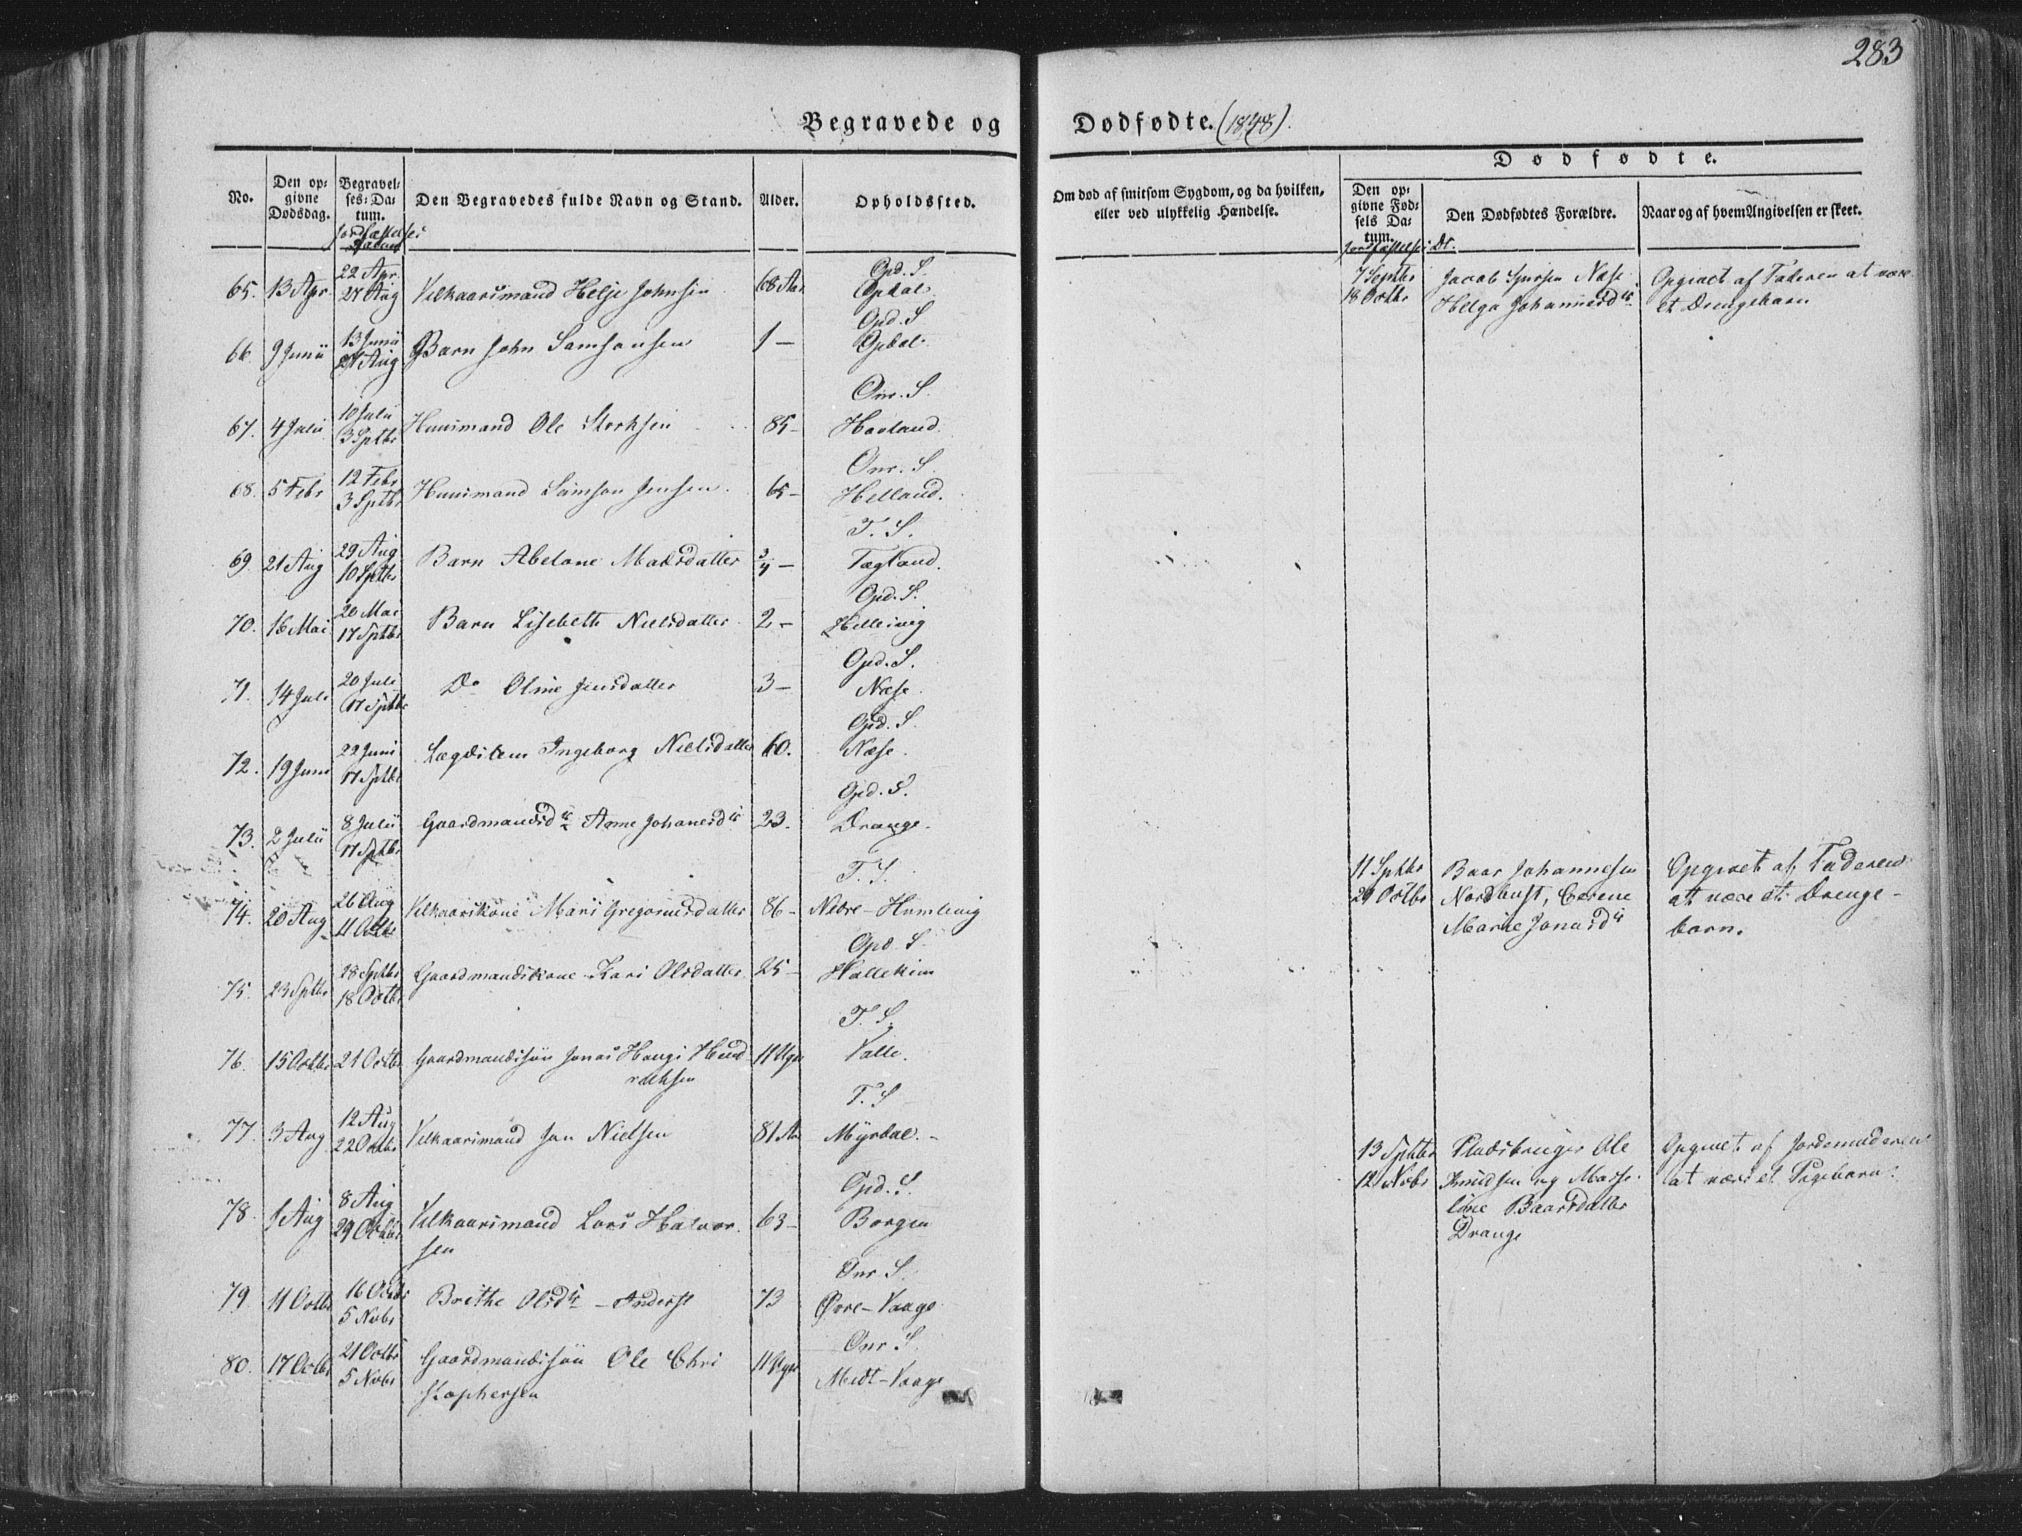 283
Begravede og Dødfødte. (1848).
No.
Den op-
givne
Dødsdag.
Begravel-
ses-Da-
tum.
Jordfæstelses
Datum
Den Begravedes fulde Navn og Stand.
Alder.
Opholdssted.
Om død af smitsom Sygdom, og da hvilken,
eller ved ulykkelig Hændelse.
Dødfødte.
Den op-
givne Fød-
sels Da-
tum.
Jordfæstelses Dt.
Den Dødfødtes Forældre.
Naar og af hvem Angivelsen er skeet.
65. 13 Apr 22 Apr 27 Aug Vilkaarsmand Helje Johnsen 68 Aar Opd. S. Opdal.
66. 9 Junii 13 Junii 27 Aug Barn John Samsonsen 1 – Opd. S Opdal.
67. 4 Julii 10 Julii 3 Sptbr Huusmand Ole Storksen 85 – Onr. S. Havland.
68. 5 Febr 12 Febr 3 Sptbr Huusmand Samson Jensen. 65 – Onr. S. Helland.
69. 21 Aug 29 Aug 10 Sptbr Barn Abelone Madsdatter 3/4 – T. S. Tægland.
70. 16 Mai 20 Mai 17 Sptbr Barn Lisebeth Nielsdatter 2 – Opd. S. Hellevig
71. 14 Juli 20 Juli 17 Sptbr Do Oline Jensdatter 3 – Opd. S. Næse.
72. 19 Juni 22 Juni 17 Sptbr Lægdslem Ingeborg Nielsdatter 60. Opd. S. Næse.
73. 2 Julii 8 Julii 17 Sptbr Gaardmandsdtr Anne Johanesdtr 23. Opd. S. Drange.
74. 20 Aug 26 Aug 11 Octbr Vilkaarskone Maris Gregoriusdatter 86 – T. S. Nedre-Humlevig
75. 23 Sptbr 28 Sptbr 18 Octbr Gaardmandskone Kari Olsdatter 25 – Opd S. Hattekim
76. 15 Octbr 21 Octbr Gaardmandssøn Jonas Haugs Hend
ricksen 11 Uger T. S. Valle.
77. 3 Aug 12 Aug 22 Octbr Vilkaarsmand Jon Nielsen 81 Aar T. S Myrdal. –
78. 1 Aug 8 Aug 29 Octbr Vilkaarsmand Lars Halvor-
sen 63 – Opd. S. Borgen
79. 11 Octbr 16 Octbr 5 Novbr Brithe Olsdtr – Inderst 73 Onr S. Øvre-Vaage
80. 17 Octbr 21 Octbr 5 Novbr Gaardmandssøn Ole Chri
stophersen 11 Uger Onr S. Midt-Vaage
7 Septbr Jacob Sjursen Næse Opgivet af Faderen at være
18 Octbr Helga Johannesdtr. et Drengebarn
11 Sptbr Baar Johannesen Opgivet af Faderen
29 Octbr Nordhust, Cerene at være et Drenge-
Marie Jonasdtr barn.
13 Sptbr Pladsbruger Ole Opgivet af Jordemoderen
12 Novbr Knudsen og Masse- at være et Pigebarn.
lene Baarsdatter
Drange